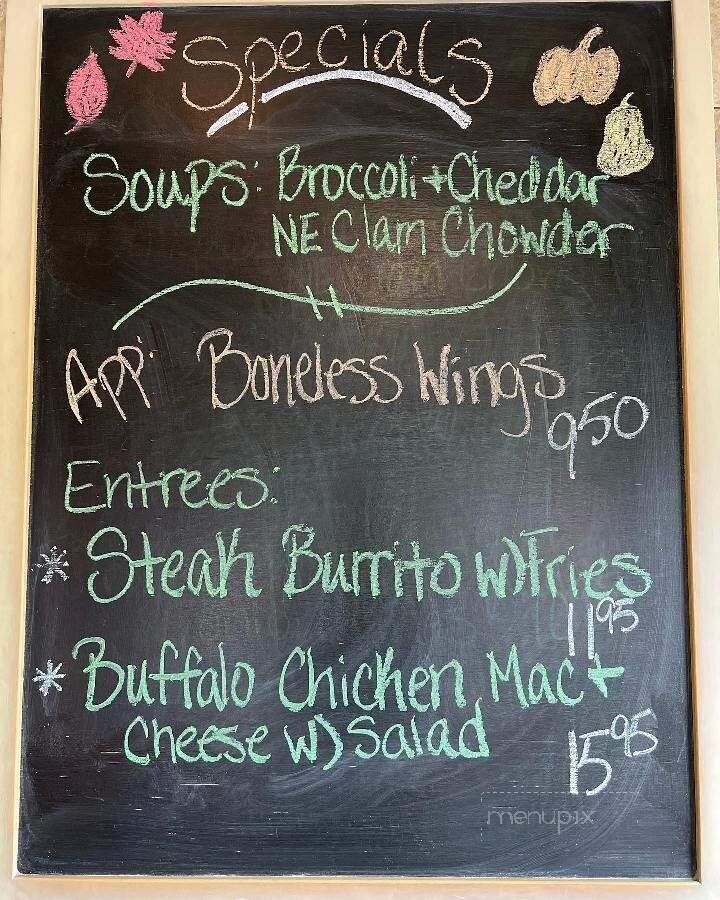 Specials
Soups: Broccoli + Cheddar
NE Clam Chowder
App: Boneless Wings
950
Entrees:
* Steak Burrito w) Fries
1195
* Buffalo Chicken Mac +
Cheese w) Salad
1595
menupix